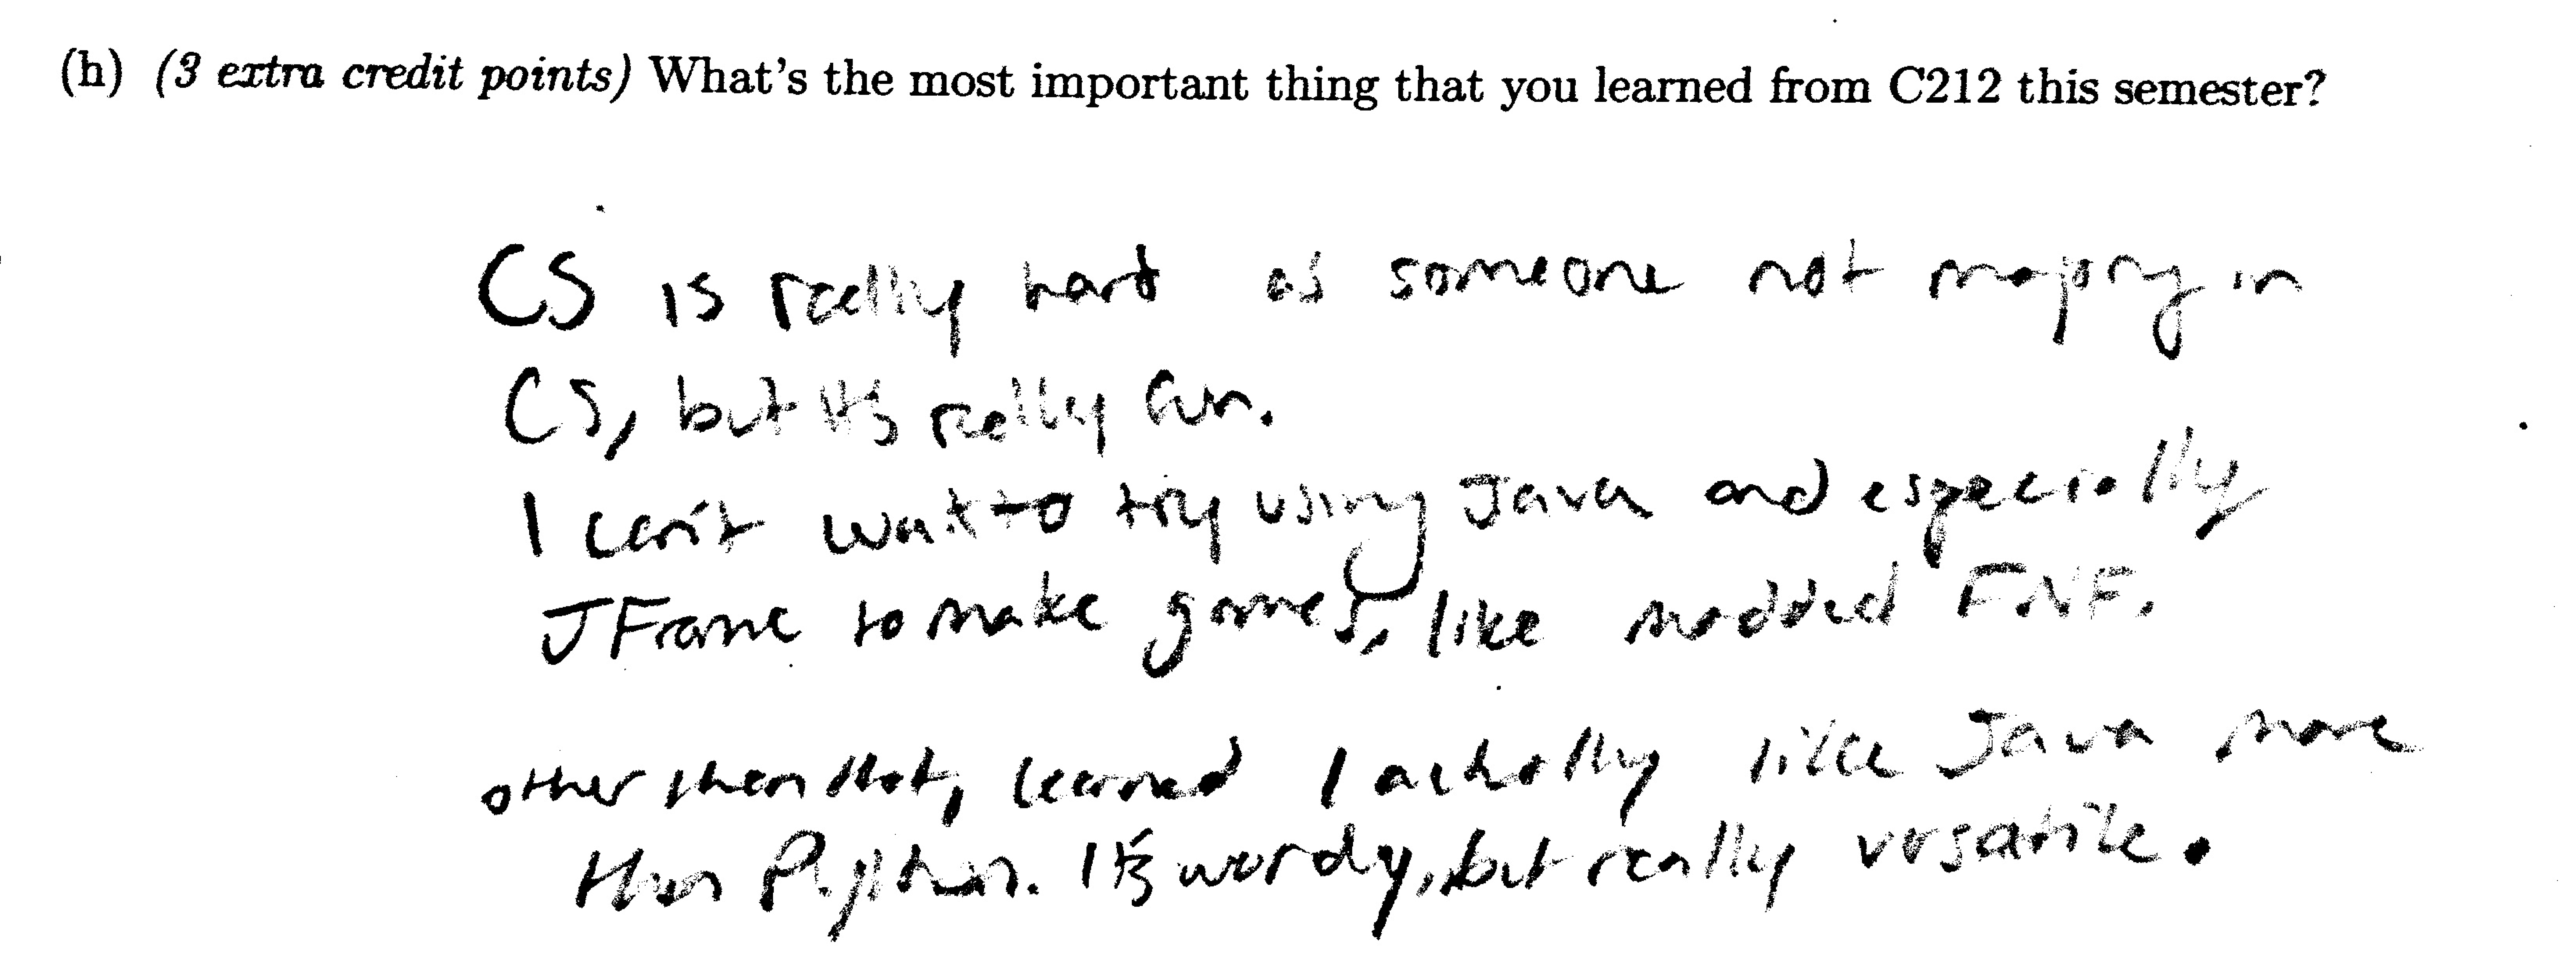 (h) (3 extra credit points) What's the most important thing that you learned from C212 this semester?
CS is really hard as someone not majoring in
CS, but it's really fun.
I can't wait to try using Java and especially
JFrame to make games, like modded FNF.
other than that, learned I actually like Java more
than Python. It's wordy, but really versatile.